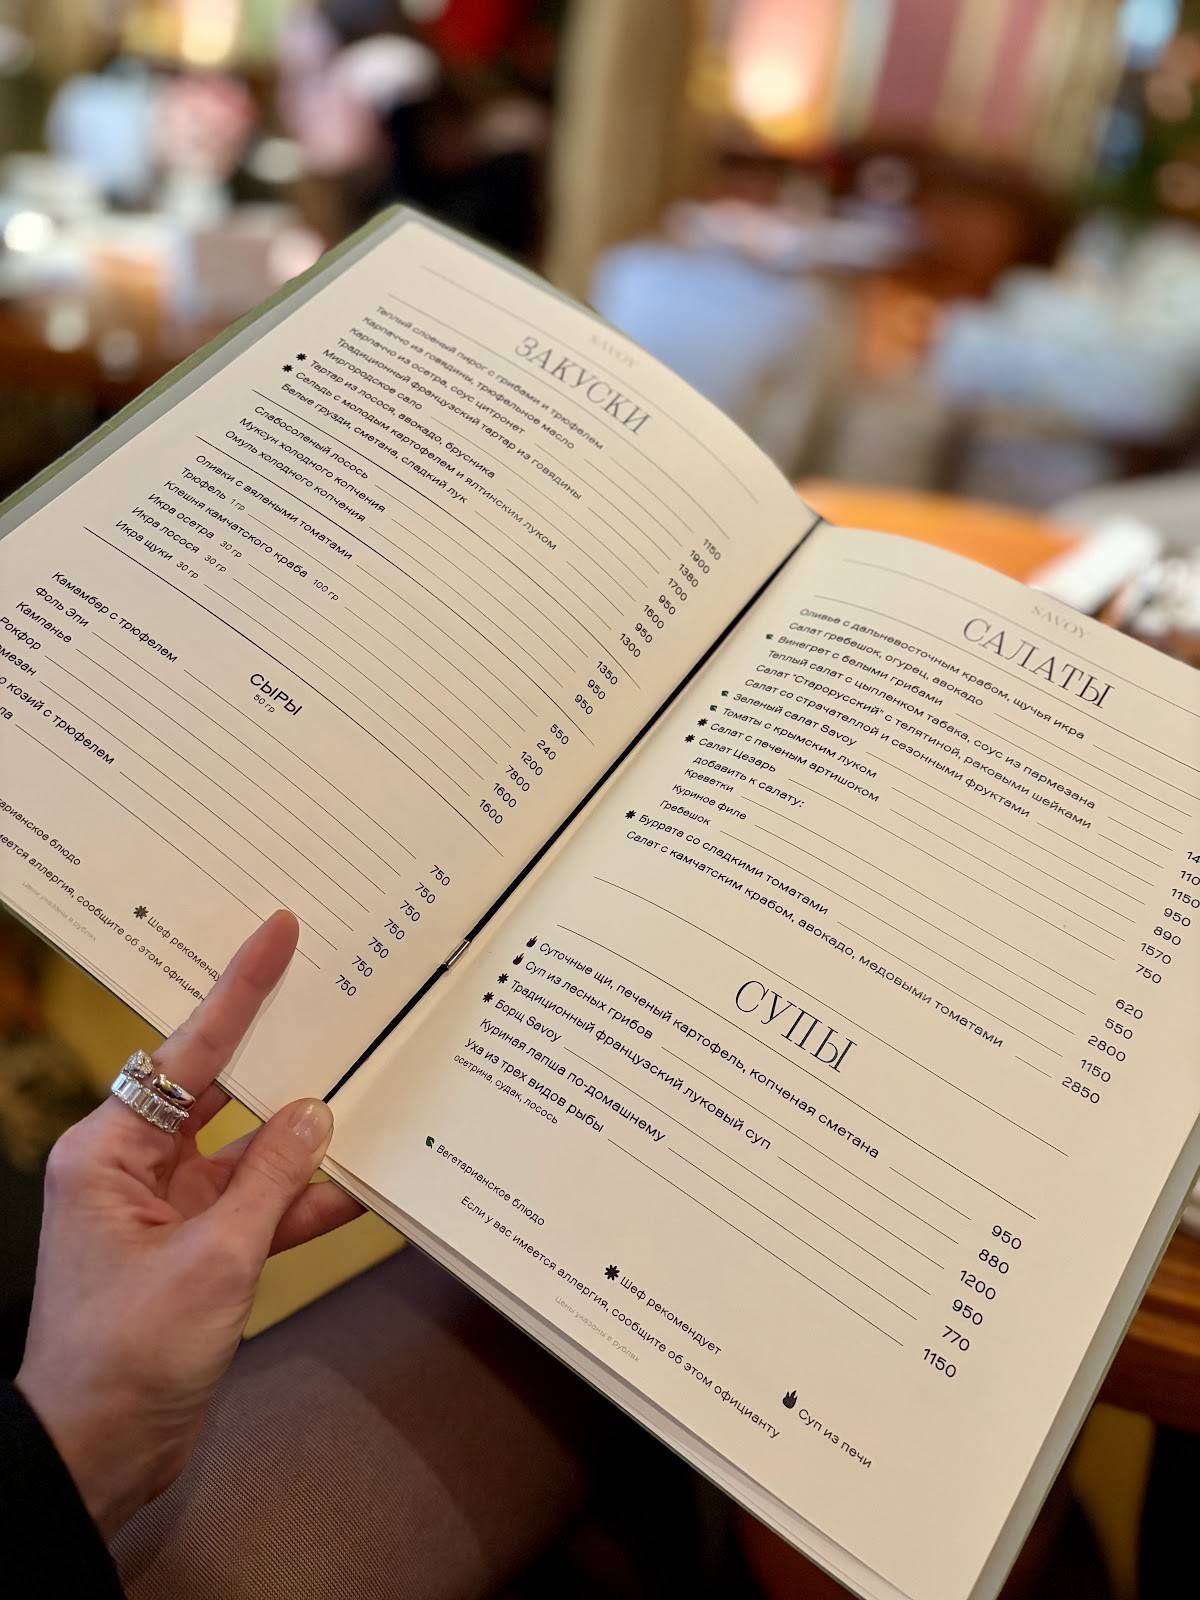 SAVOY
ЗАКУСКИ
Теплый слоеный пирог с грибами и трюфелем 1150
Карпаччо из говядины, трюфельное масло 1900
Карпаччо из осетра, соус цитронет 1380
Традиционный французский тартар из говядины 1700
Миргородское сало 950
Тартар из лосося, авокадо, брусника 1600
Сельдь с молодым картофелем и ялтинским луком 950
Белые грузди, сметана, сладкий лук 1300
Слабосоленый лосось 1350
Муксун холодного копчения 950
Омуль холодного копчения 950
Оливки с вялеными томатами 550
Трюфель 1 гр 240
Клешня камчатского краба 100 гр 1200
Икра осетра 30 гр 7800
Икра лосося 30 гр 1600
Икра щуки 30 гр 1600
СЫРЫ
50 гр
Камамбер с трюфелем 750
Фоль Эпи 750
Кампанье 750
Рокфор 750
козий с трюфелем 750
750
блюдо
Шеф рекоменду
аллергия, сообщите об этом официан
Цены указаны в рублях
SAVOY
САЛАТЫ
Оливье с дальневосточным крабом, щучья икра
Салат гребешок, огурец, авокадо
Винегрет с белыми грибами
Теплый салат с цыпленком табака, соус из пармезана
Салат "Старорусский" с телятиной, раковыми шейками
Салат со страчателлой и сезонными фруктами 1150
Зеленый салат Savoy 950
Томаты с крымским луком 890
Салат с печеным артишоком 1570
Салат Цезарь 750
добавить к салату:
Креветки 620
Куриное филе 550
Гребешок 2800
Буррата со сладкими томатами 1150
Салат с камчатским крабом, авокадо, медовыми томатами 2850
СУПЫ
Суточные щи, печеный картофель, копченая сметана 950
Суп из лесных грибов 880
Традиционный французский луковый суп 1200
Борщ Savoy 950
Куриная лапша по-домашнему 770
Уха из трех видов рыбы 1150
осетрина, судак, лосось
Вегетарианское блюдо
Шеф рекомендует
Суп из печи
Если у вас имеется аллергия, сообщите об этом официанту
Цены указаны в рублях